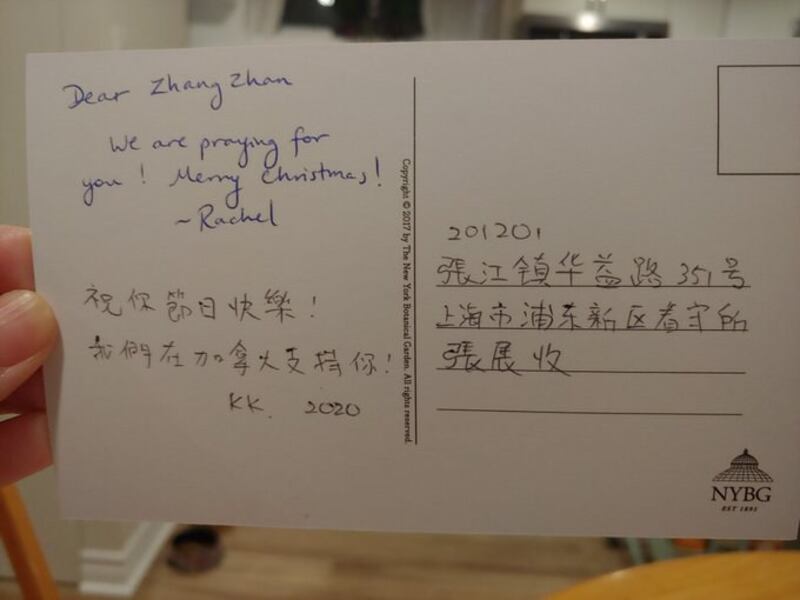 Dear Zhang Zhan
We are praying for
you! Merry Christmas!
~Rachel
祝你節日快樂!
我們在加拿大支持你!
KK. 2020
Copyright © 2017 by The New York Botanical Garden. All rights reserved.
201201
張江镇华益路351号
上海市浦东新区看守所
張展收
NYBG
EST 1891